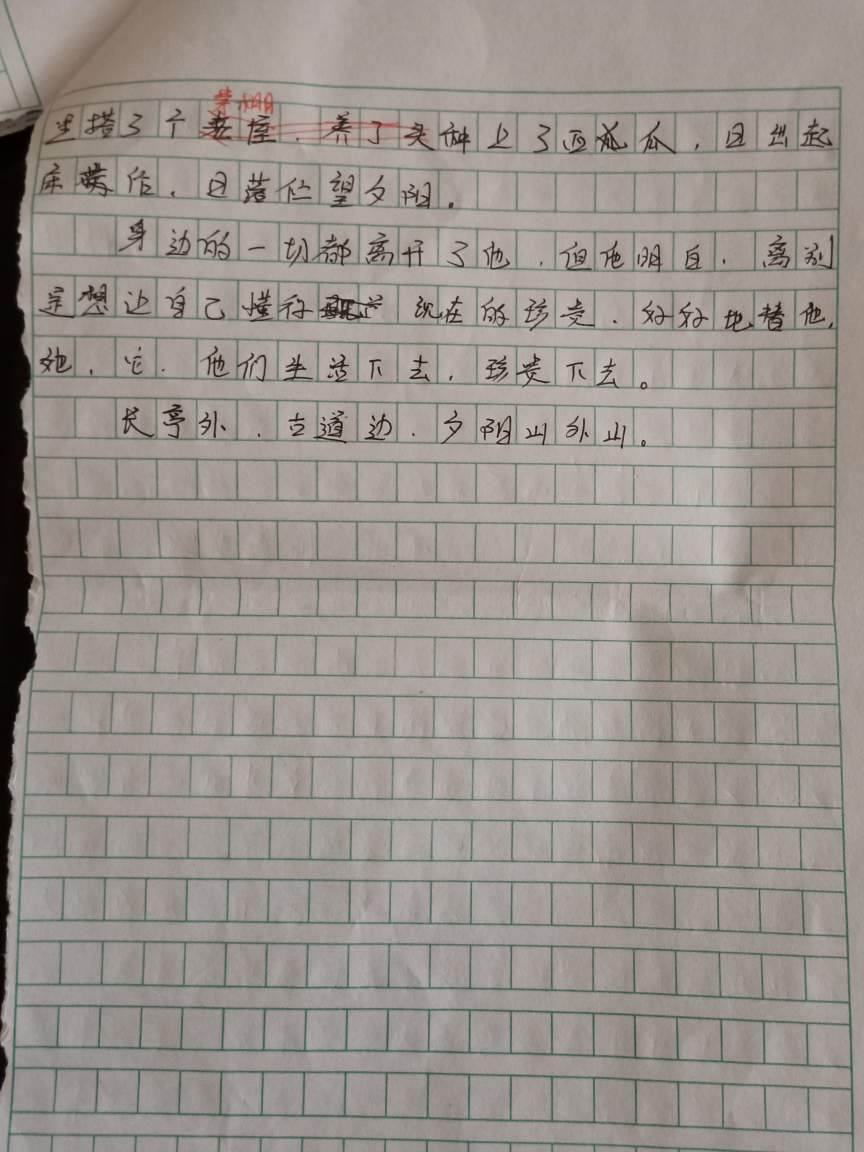 草棚
边搭了个栽屋，养了头种上了西瓜瓜，日出起
床劳作，日落伫望夕阳。
身边的一切都离开了他，但他明白，离别
是想让自己懂得现在的珍贵，好好地替他，
她，它，他们生活下去，珍贵下去。
长亭外，古道边，夕阳山外山。